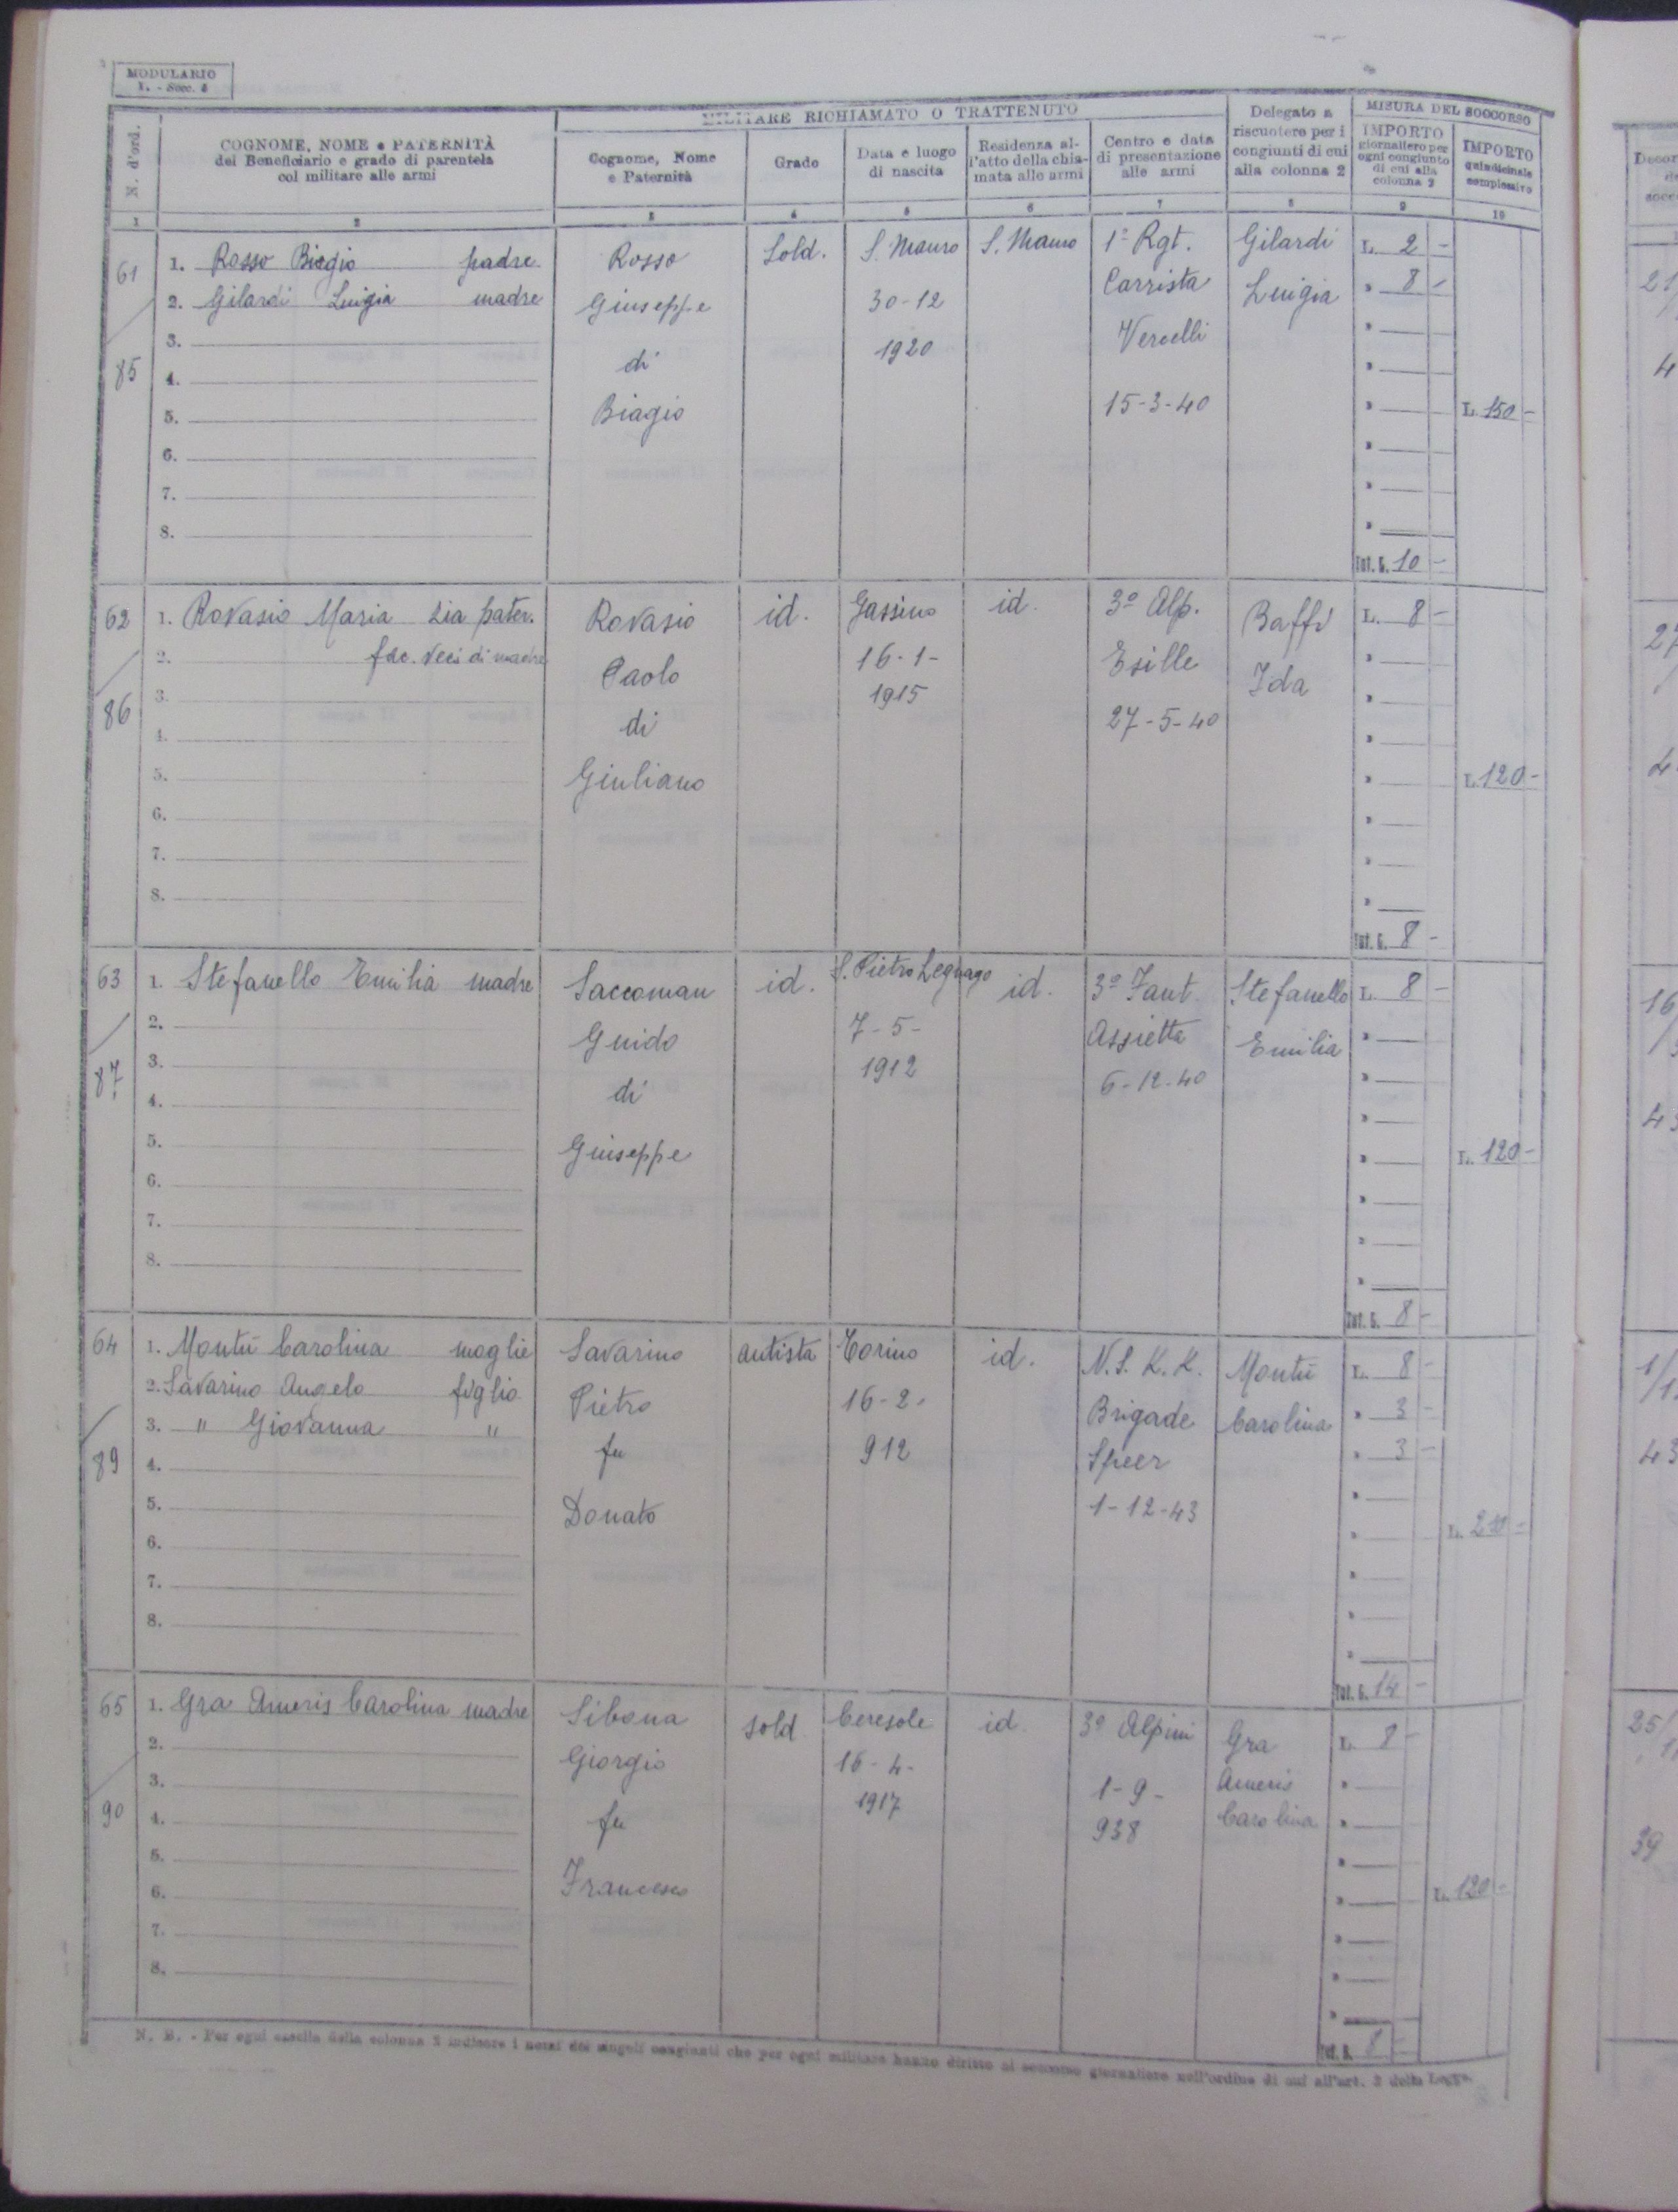 MODULARIO
I. - Socc. 4
N. d'ord.
COGNOME, NOME e PATERNITÀ
del Beneficiario e grado di parentela
col militare alle armi
MILITARE RICHIAMATO O TRATTENUTO
Cognome, Nome
e Paternità
Grado
Data e luogo
di nascita
Residenza al-
l'atto della chia-
mata alle armi
Centro e data
di presentazione
alle armi
Delegato a
riscuotere per i
congiunti di cui
alla colonna 2
MISURA DEL SOCCORSO
IMPORTO
giornaliero per
ogni congiunto
di cui alla
colonna 2
IMPORTO
quindicinale
complessivo
1 2 3 4 5 6 7 8 9 10
61
85
1. Rosso Biagio padre
2. Gilardi Luigia madre
3.
4.
5.
6.
7.
8.
Rosso
Giuseppe
di
Biagio
Sold.
S. Mauro
30-12
1920
S. Mauro
1° Rgt.
Carrista
Vercelli
15-3-40
Gilardi
Luigia
L. 2 -
" 8 -
Tot. G. 10 -
L. 150 -
62
86
1. Rovasio Maria zia pater.
2. fac. veci di madre
3.
4.
5.
6.
7.
8.
Rovasio
Paolo
di
Giuliano
id.
Gassino
16-1-
1915
id.
3° Alp.
Esille
27-5-40
Baffi
Ida
L. 8 -
Tot. G. 8 -
L. 120 -
63
87
1. Stefanello Emilia madre
2.
3.
4.
5.
6.
7.
8.
Saccoman
Guido
di
Giuseppe
id.
S. Pietro Legnago
7-5-
1912
id.
3° Fant.
Assietta
6-12-40
Stefanello
Emilia
L. 8 -
Tot. G. 8 -
L. 120 -
64
89
1. Montù Carolina moglie
2. Savarino Angelo figlio
3. " Giovanna "
4.
5.
6.
7.
8.
Savarino
Pietro
fu
Donato
autista
Torino
16-2-
912
id.
N.S.K.K.
Brigade
Speer
1-12-43
Montù
Carolina
L. 8 -
" 3 -
" 3 -
Tot. G. 14 -
L. 210 -
65
90
1. Gra Ameris Carolina madre
2.
3.
4.
5.
6.
7.
8.
Sibona
Giorgio
fu
Francesco
sold.
Ceresole
16-4-
1917
id.
3° Alpini
1-9-
938
Gra
Ameris
Carolina
L. 8 -
Tot. G. 8 -
L. 120 -
N. B. - Per ogni casella della colonna 2 indicare i nomi dei singoli congiunti che per ogni militare hanno diritto al soccorso giornaliero nell'ordine di cui all'art. 2 della Legge.